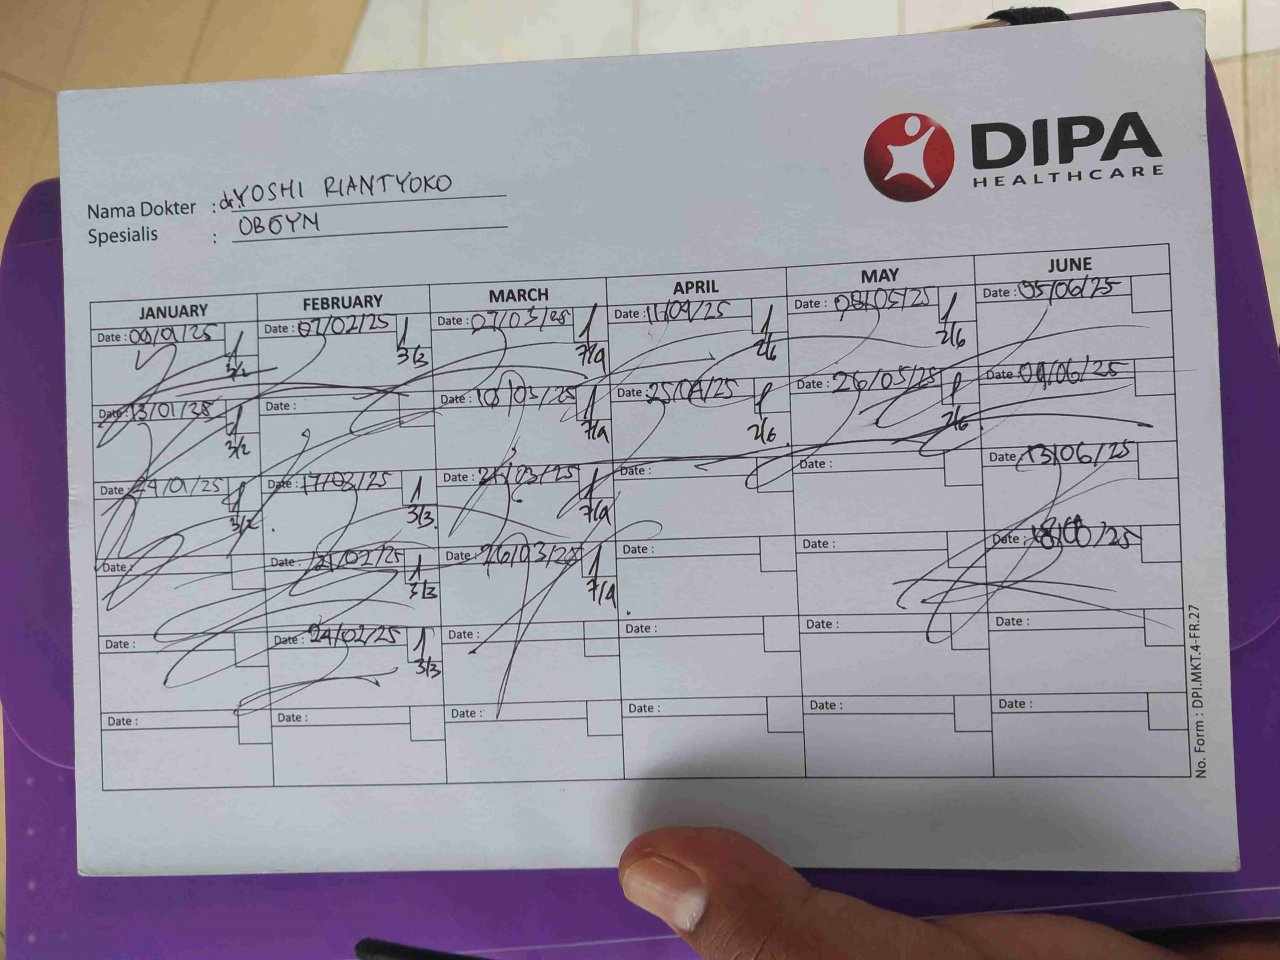 DIPA
HEALTHCARE
Nama Dokter : dr. YOSHI RIANTYOKO
Spesialis : OBGYN
JANUARY FEBRUARY MARCH APRIL MAY JUNE
Date : /01/25 1 Date : 07/02/25 1 Date : 07/03/25 1 Date : 11/04/25 1 Date : 08/05/25 1 Date : 05/06/25
3/2 3/3 7/4 2/6 2/6
Date : 13/01/25 1 Date : Date : 10/03/25 1 Date : 25/04/25 1 Date : 26/05/25 1 Date : /06/25
3/2 7/4 2/6 2/6
Date : /01/25 1 Date : 17/02/25 1 Date : /03/25 1 Date : Date : Date : 13/06/25
3/2 3/3 7/4
Date : Date : 21/02/25 1 Date : 26/03/25 1 Date : Date : Date : 18/06/25
3/3 7/4
Date : Date : 24/02/25 1 Date : Date : Date : Date :
3/3
Date : Date : Date : Date : Date : Date :
No. Form : DPI.MKT.4-FR.27